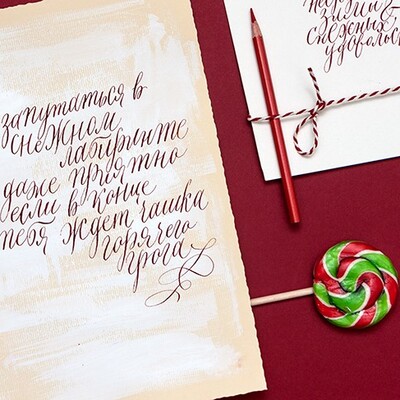 запутаться в
снежном
лабиринте
даже приятно
если в конце
тебя ждет чашка
горячего
грога
зимни
снежных
удоволь